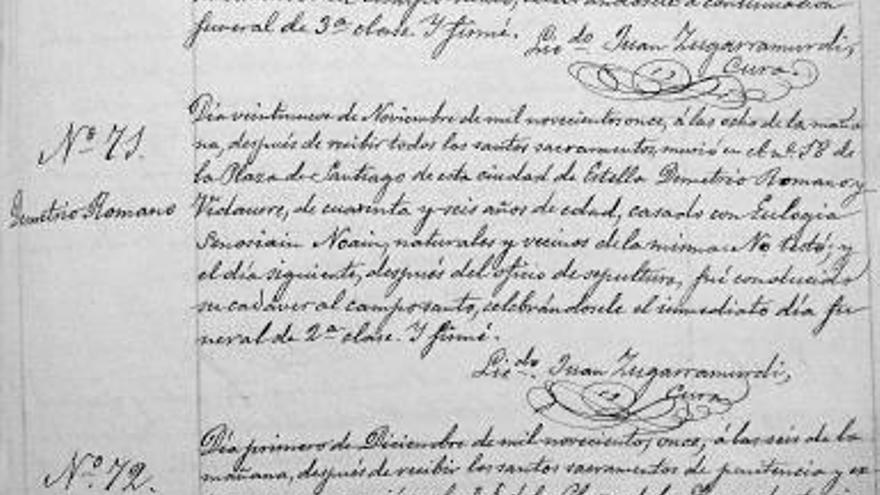 funeral de 3ª clase. Y firmé. Lic.do Juan Zugarramurdi,
Cura.
Nº 71.
Demetrio Romano
Día veintinueve de Noviembre de mil novecientos once, á las ocho de la maña
na, después de recibir todos los santos sacramentos, murió en el nº 58 de
la Plaza de Santiago de esta ciudad de Estella Demetrio Romano y
Vidaurre, de cuarenta y seis años de edad, casado con Eulogia
Senosiain Noain, naturales y vecinos de la misma. No testó; y
el día siguiente, después del oficio de sepultura, fué conducido
su cadáver al camposanto, celebrándosele el inmediato día fu
neral de 2ª clase. Y firmé.
Lic.do Juan Zugarramurdi,
Cura
Nº 72.
Día primero de Diciembre de mil novecientos once, á las seis de la
mañana, después de recibir los santos sacramentos de penitencia y ex